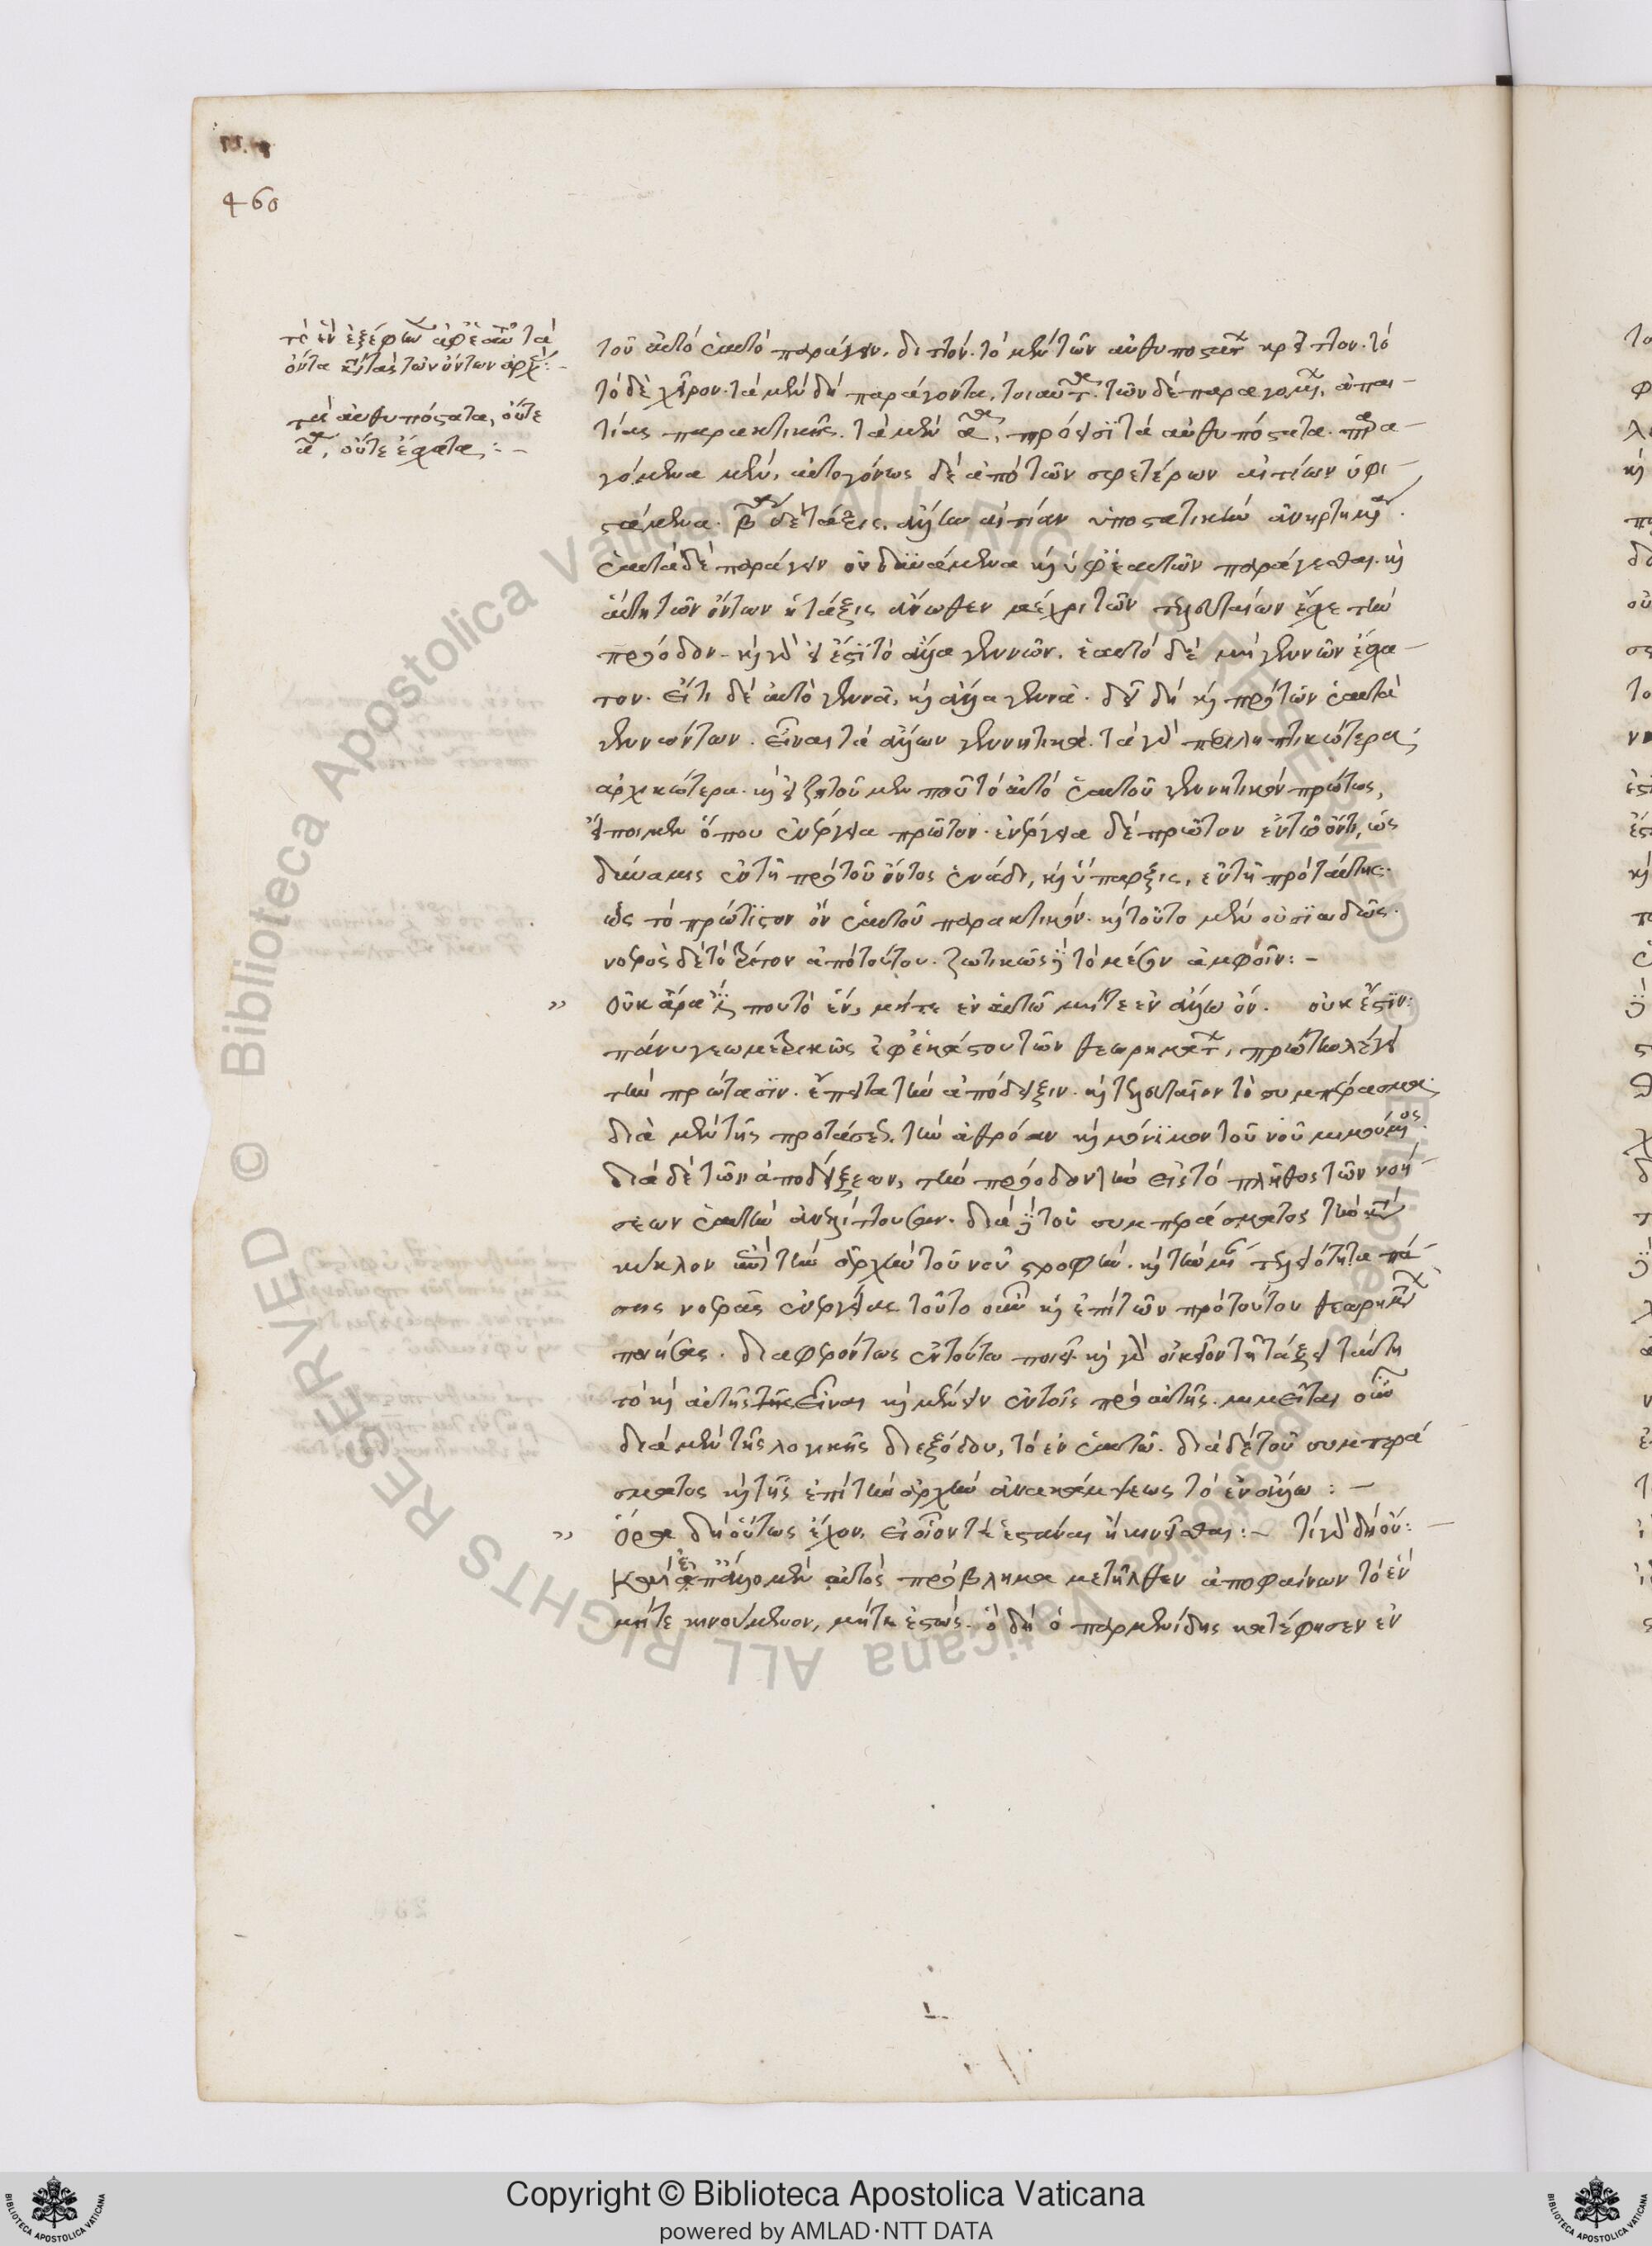 460
τὸ ἓν ἐξέφην ἀφ' ἑαυτοῦ τὰ
ὄντα καὶ τὰς τῶν ὄντων ἀρχάς:-
τὰ αὐθυπόστατα, οὔτε
αα, οὔτε ἔσχατα:-
τοῦ αὐτὸ ἑαυτὸ παράγειν, διττόν. τὸ μὲν τῶν αὐθυποστάτων κρεῖττον. τὸ
τὸ δὲ χεῖρον. τὰ μὲν δὴ παράγοντα, τοιαῦτα. τῶν δὲ παραγομένων, ἀπαι-
τίας παρακτικῆς. τὰ μὲν αα, πρόεισι τὰ αὐθυπόστατα. παρα-
γόμενα μὲν, αὐτογόνως δὲ ἀπὸ τῶν σφετέρων αἰτίων ὑφι-
στάμενα. βα δὲ τάξις, ἄλλην αἰτίαν ὑποστατικὴν ἀνηρτημένα.
ἑαυτὰ δὲ παράγειν οὐ δυνάμενα καὶ ὑφ' ἑαυτῶν παράγεσθαι. καὶ
αὕτη τῶν ὄντων ἡ τάξις ἄνωθεν μέχρι τῶν τελευταίων ἔχει τὴν
πρόοδον. καὶ γὰρ εἰ ἔστι τὸ ἄλλα γεννῶν, ἑαυτὸ δὲ μὴ γεννῶν ἔσχα-
τον. ἔτι δὲ αὐτὸ γεννᾷ, καὶ ἄλλα γεννᾷ. δεῖ δὴ καὶ πρὸ τῶν ἑαυτὰ
γεννώντων. εἶναι τὰ ἄλλων γεννητικά. τὰ γὰρ περιληπτικώτερα,
ἀρχικώτερα. καὶ εἰ ζητοῦμεν ποῦ τὸ αὐτὸ ἑαυτοῦ γεννητικὸν πρώτως,
εἴποιμεν ὅπου ἐνέργεια πρῶτον. ἐνέργεια δὲ πρῶτον ἐν τῷ ὄντι, ὡς
δύναμις ἐν τῇ πρὸ τοῦ ὄντος ἑνάδι, καὶ ὕπαρξις, ἐν τῇ πρὸ ταύτης.
ὡς τὸ πρώτιστον ὂν ἑαυτοῦ παρακτικόν. καὶ τοῦτο μὲν οὐσιωδῶς.
νοερῶς δὲ τὸ τρίτον ἀπὸ τούτου. ζωτικῶς δὲ τὸ μέσον ἀμφοῖν:-
» οὐκ ἄρα ἐστί που τὸ ἓν, μήτε ἐν αὑτῷ μήτε ἐν ἄλλῳ ὄν. οὐκ ἔστιν:
πάνυ γεωμετρικῶς ἐφ' ἑκάστου τῶν θεωρημάτων, πρῶτον λέγει
τὴν πρότασιν. ἔπειτα τὴν ἀπόδειξιν. καὶ τελευταῖον τὸ συμπέρασμα.
διὰ μὲν τῆς προτάσεως, τὴν ἀθρόαν καὶ μόνιμον τοῦ νοῦ μιμούμενος.
διὰ δὲ τῶν ἀποδείξεων, τὴν πρόοδον τὴν εἰς τὸ πλῆθος τῶν νοή-
σεων ἑαυτὴν ἀνελίττουσαν. διὰ δὲ τοῦ συμπεράσματος τὴν κατὰ
κύκλον ἐπὶ τὴν ἀρχὴν τοῦ νοῦ στροφήν. καὶ τὴν μίαν τελειότητα πά-
σης νοερᾶς ἐνεργείας. τοῦτο οὖν καὶ ἐπὶ τῶν πρὸ τούτου θεωρημάτων
ποιήσας. διαφερόντως ἐν τούτῳ ποιεῖ. καὶ γὰρ οἰκεῖον τῇ τάξει ταύτῃ
τὸ καὶ αὐτῆς εἶναι καὶ μένειν ἐν τοῖς πρὸ αὐτῆς. μιμεῖται οὖν
διὰ μὲν τῆς λογικῆς διεξόδου, τὸ ἐν ἑαυτῷ. διὰ δὲ τοῦ συμπερά
σματος καὶ τῆς ἐπὶ τὴν ἀρχὴν ἀνακάμψεως τὸ ἐν ἄλλῳ:-
» ὅρα δὴ οὕτως ἔχον, εἰ οἷόν τε ἑστάναι ἢ κινεῖσθαι:- τί γὰρ δὴ οὔ:-
Καὶ ἐπ' ἄλλο μὲν αὐτὸς πρόβλημα μετῆλθεν ἀποφαίνων τὸ ἓν
μήτε κινούμενον, μήτε ἑστώς. ὃ δὴ ὁ παρμενίδης κατέφησεν ἐν